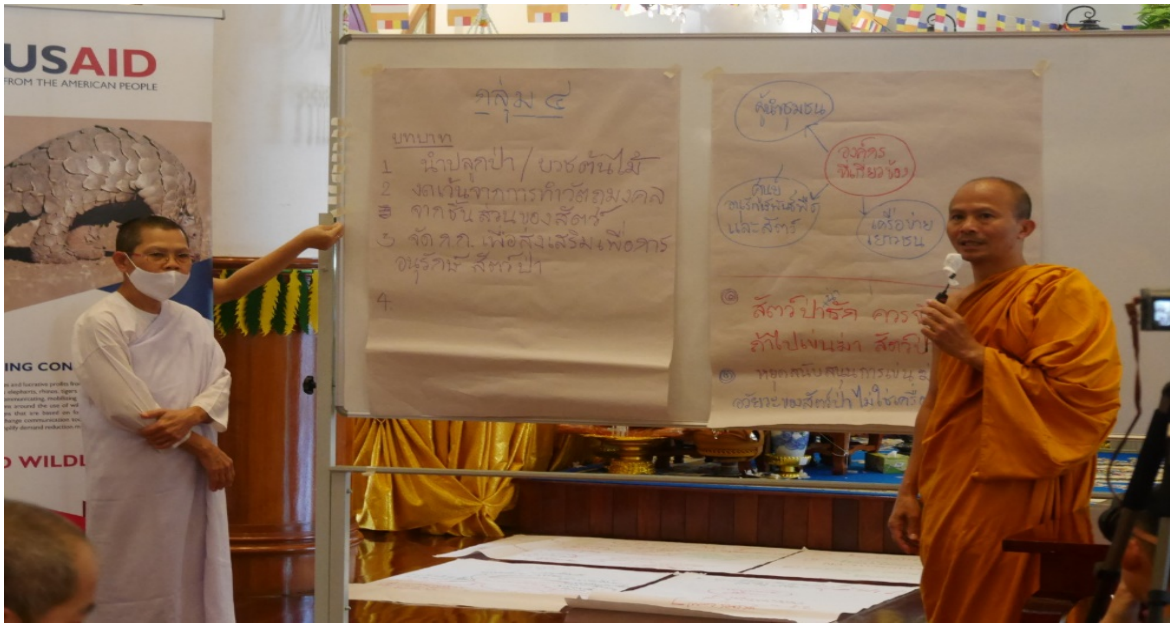 USAID
FROM THE AMERICAN PEOPLE
ING CON
D WILDL
กลุ่ม ๔
บทบาท
1 นำปลูกป่า / บวชต้นไม้
2 งดเว้นจากการทำวัตถุมงคล
จากชิ้นส่วนของสัตว์
3. จัด ก.ก. เพื่อส่งเสริมเพื่อการ
อนุรักษ์ สัตว์ป่า
4.
ผู้นำชุมชน
องค์กร
ที่เกี่ยวข้อง
ศูนย์
อนุรักษ์พันธุ์พืช
และสัตว์
เครือข่าย
เยาวชน
สัตว์ป่า ควร
ถ้าไปเข่นฆ่า สัตว์ป
หยุดสนับสนุนการเข่น ฆ
อวัยวะของสัตว์ป่า ไม่ใช่เครื่อ